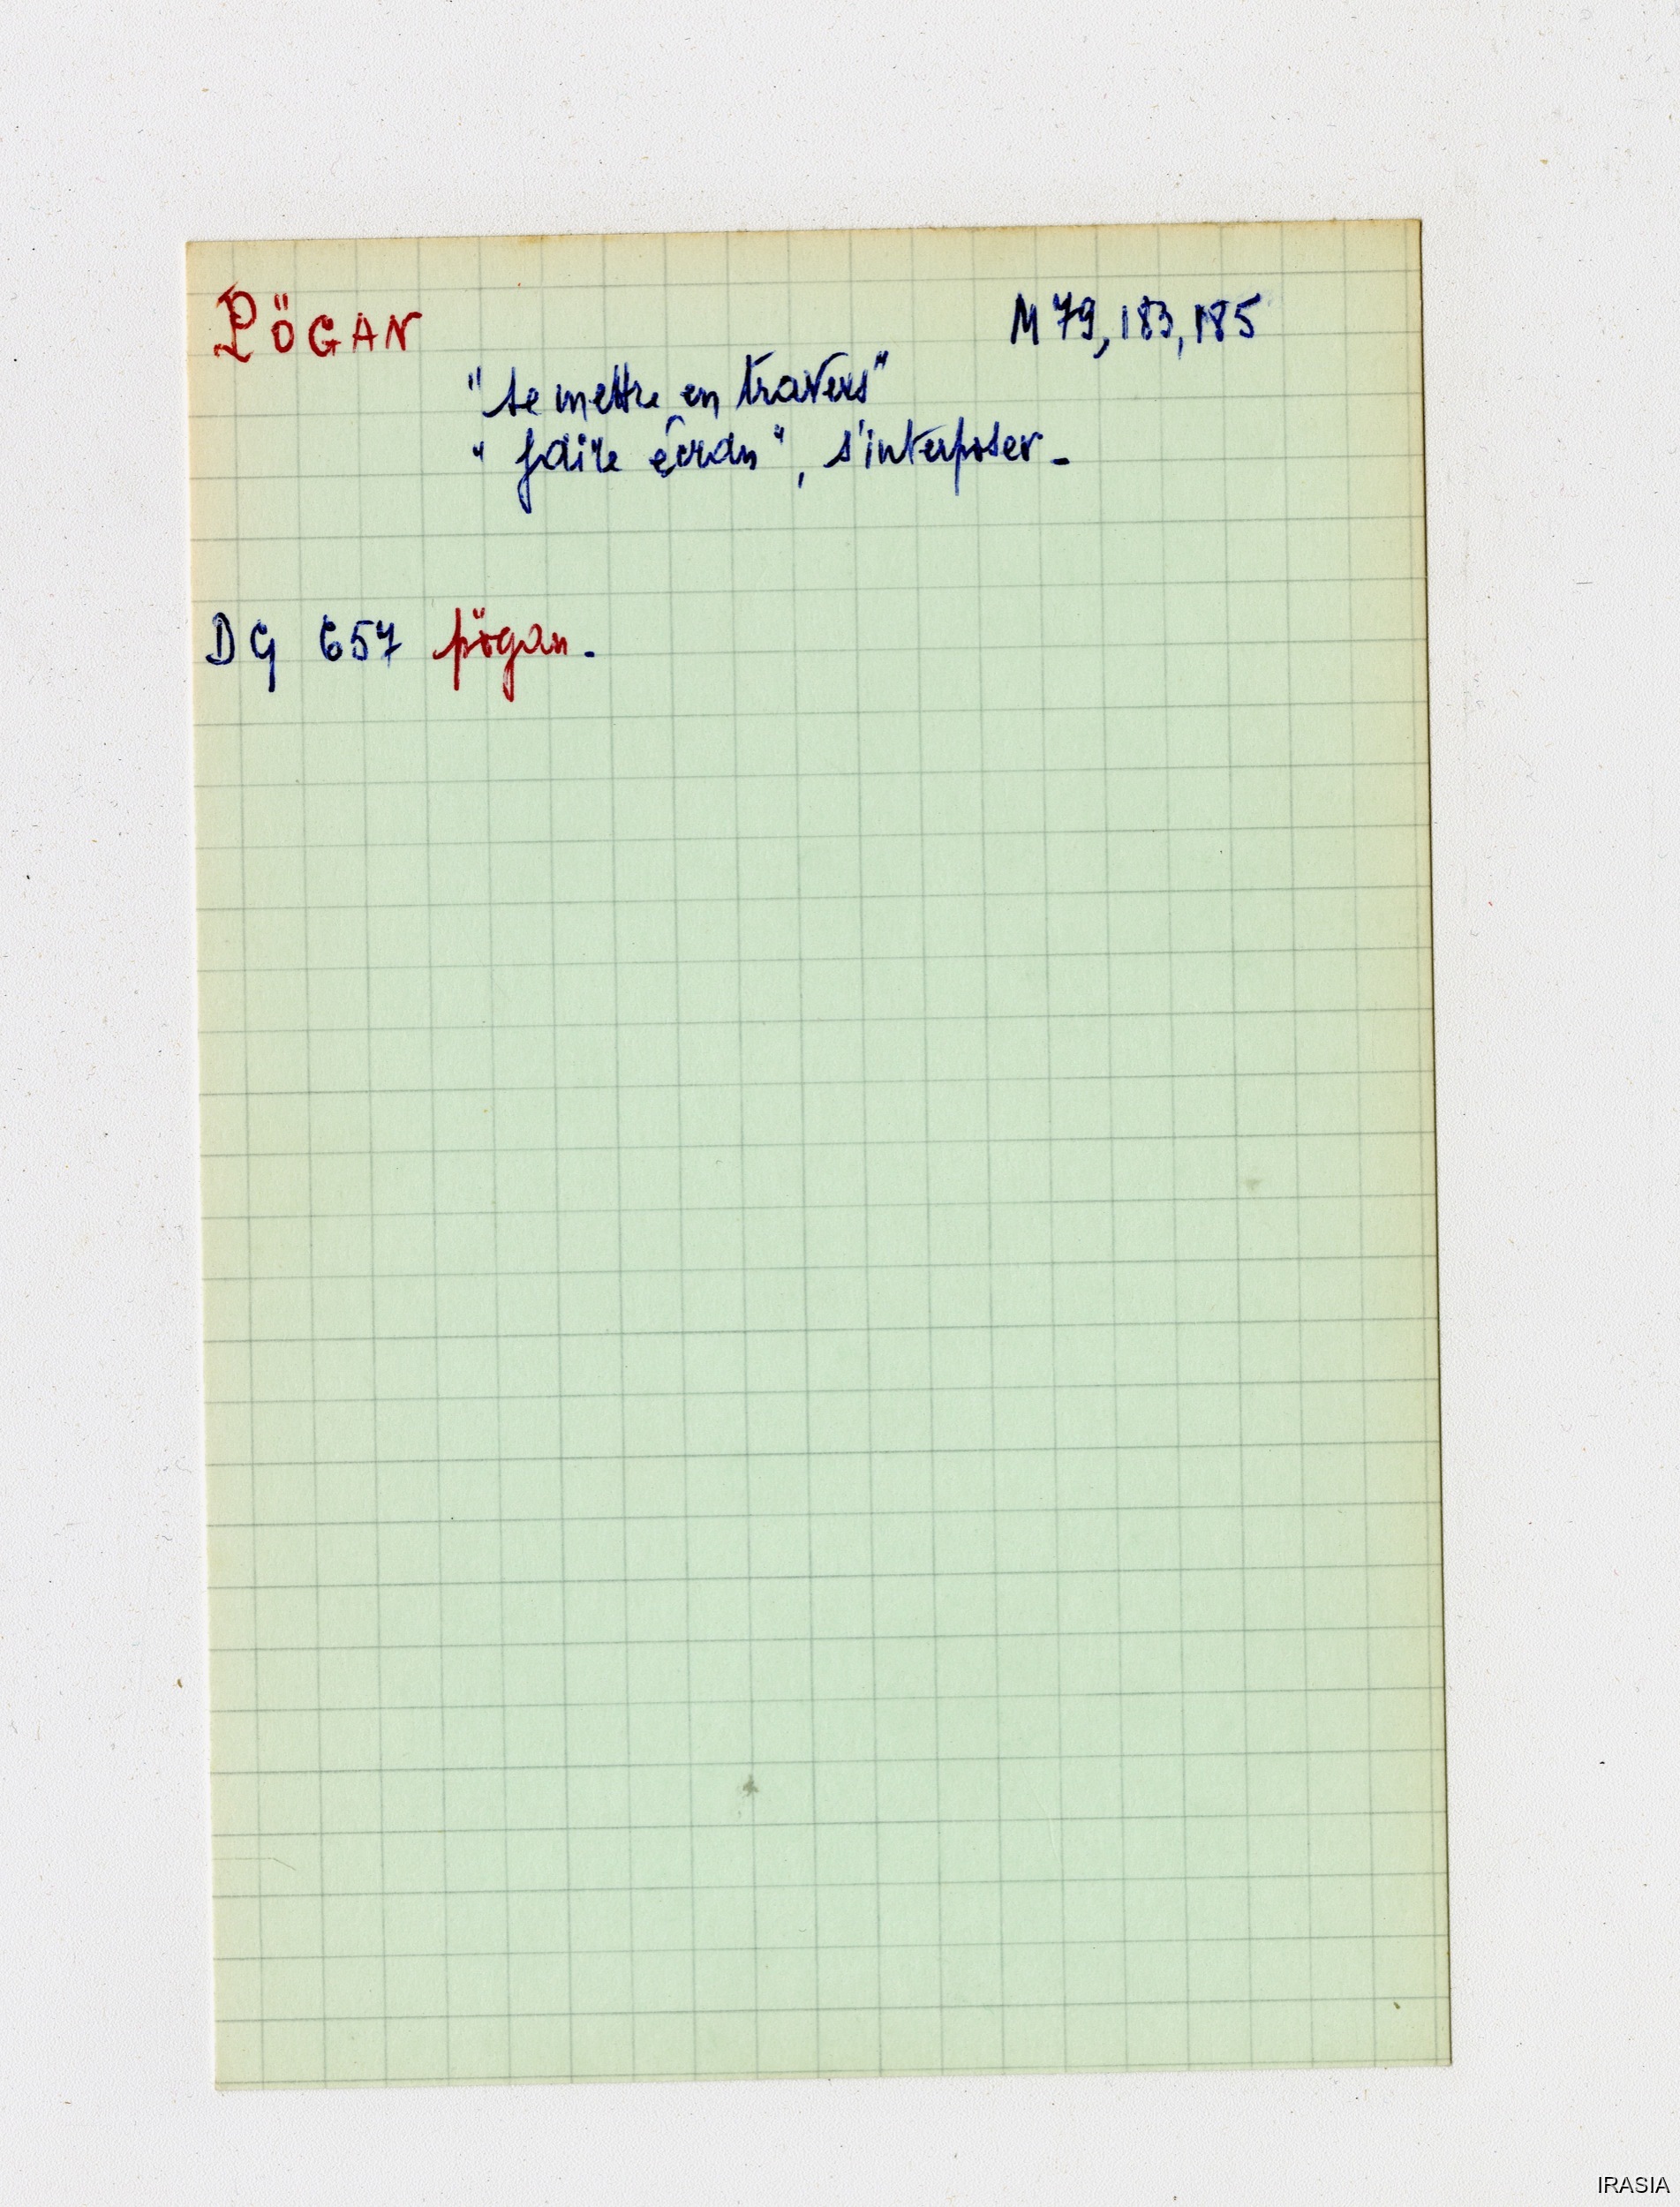 PÖGAN M 79, 183, 185
"se mettre en travers"
"faire écran", s'interposer -
DG 657 pögan -
IRASIA